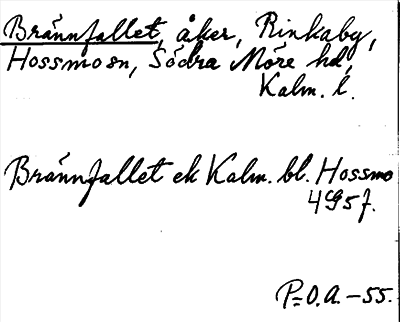 Brännfallet, åker, Rinkaby,
Hossmo sn, Södra Möre hd,
Kalm. l.
Brännfallet ek Kalm. bl. Hossmo
4G5f.
P=O.A.-55.